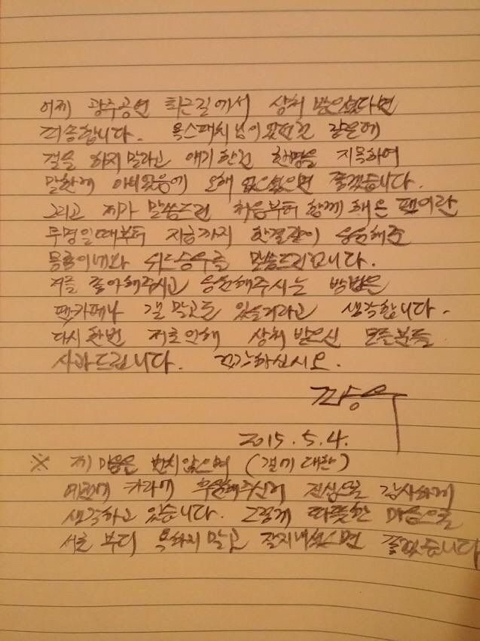 어제 광주공연 퇴근길에서 상처 받으셨다면
죄송합니다. 님이 같은
걸을 하지말라고 얘기한건 한명을 지목하여
말한게 아니였음에 오해 없으셨으면 좋겠습니다.
그리고 제가 말씀드린 처음부터 함께 해온 팬이란
무명일때부터 지금까지 한결같이 응원해준
말씀드린겁니다.
저를 좋아해주시고 응원해주시는 방법은
팬카페나 갤 말고도 있을거라고 생각합니다.
다시 한번 저로인해 상처 받으신 모든분들
사과드립니다. 건강하십시오.
2015. 5. 4.
※ 제 마음은 변치않으며 (걔기 대한)
카라에 후원해주신게 진심으로 감사하게
생각하고 있습니다. 그렇게 따뜻한 마음으로
서로 부디 욕하지 말고 잘지내셨으면 좋겠습니다